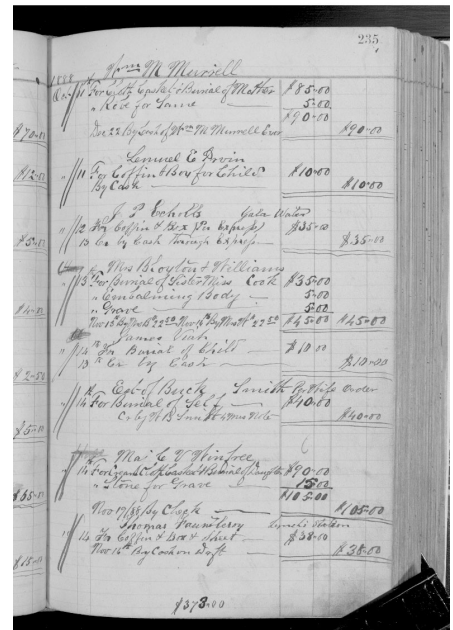 235
1888 Wm M Murrell
Oct 11 For Cloth Casket & Burial of Mother $85.00
" Robe for Same 5.00
$90.00
Dec 22 By Cash of Wm M Murrell Exer $90.00
Lemuel E
" 11 For Coffin & Box for Child $10.00
By Cash $10.00
J P Echolls Gala Water
" 12 For Coffin & Box Per Express $35.00
13 Cr by Cash Through Express $35.00
Mrs & Williams
" 13 For Burial of Sister Miss Cook $35.00
" Embalming Body 5.00
" Grave 5.00
Nov 15th By 22 50 Nov 16th By 22 50 $45.00 $45.00
James
" 14 For Burial of Child $10.00
13 Cr by Cash $10.00
Est of Buck Smith Per Wifes Order
" 14 For Burial of Self $40.00
Cr by W B Smith Note $40.00
Maj C V Winfree
" 14 For Cloth Casket & Burial of Daughter $90.00
" Stone for Grave 15.00
$105.00
Nov 17/88 By Check $105.00
Thomas Station
" 14 For Coffin & Box & $38.00
Nov 16th By Cash on Dft $38.00
$373.00
$70.00
$12.50
$5.00
$4.00
$2.50
$5.00
$35.00
$15.00